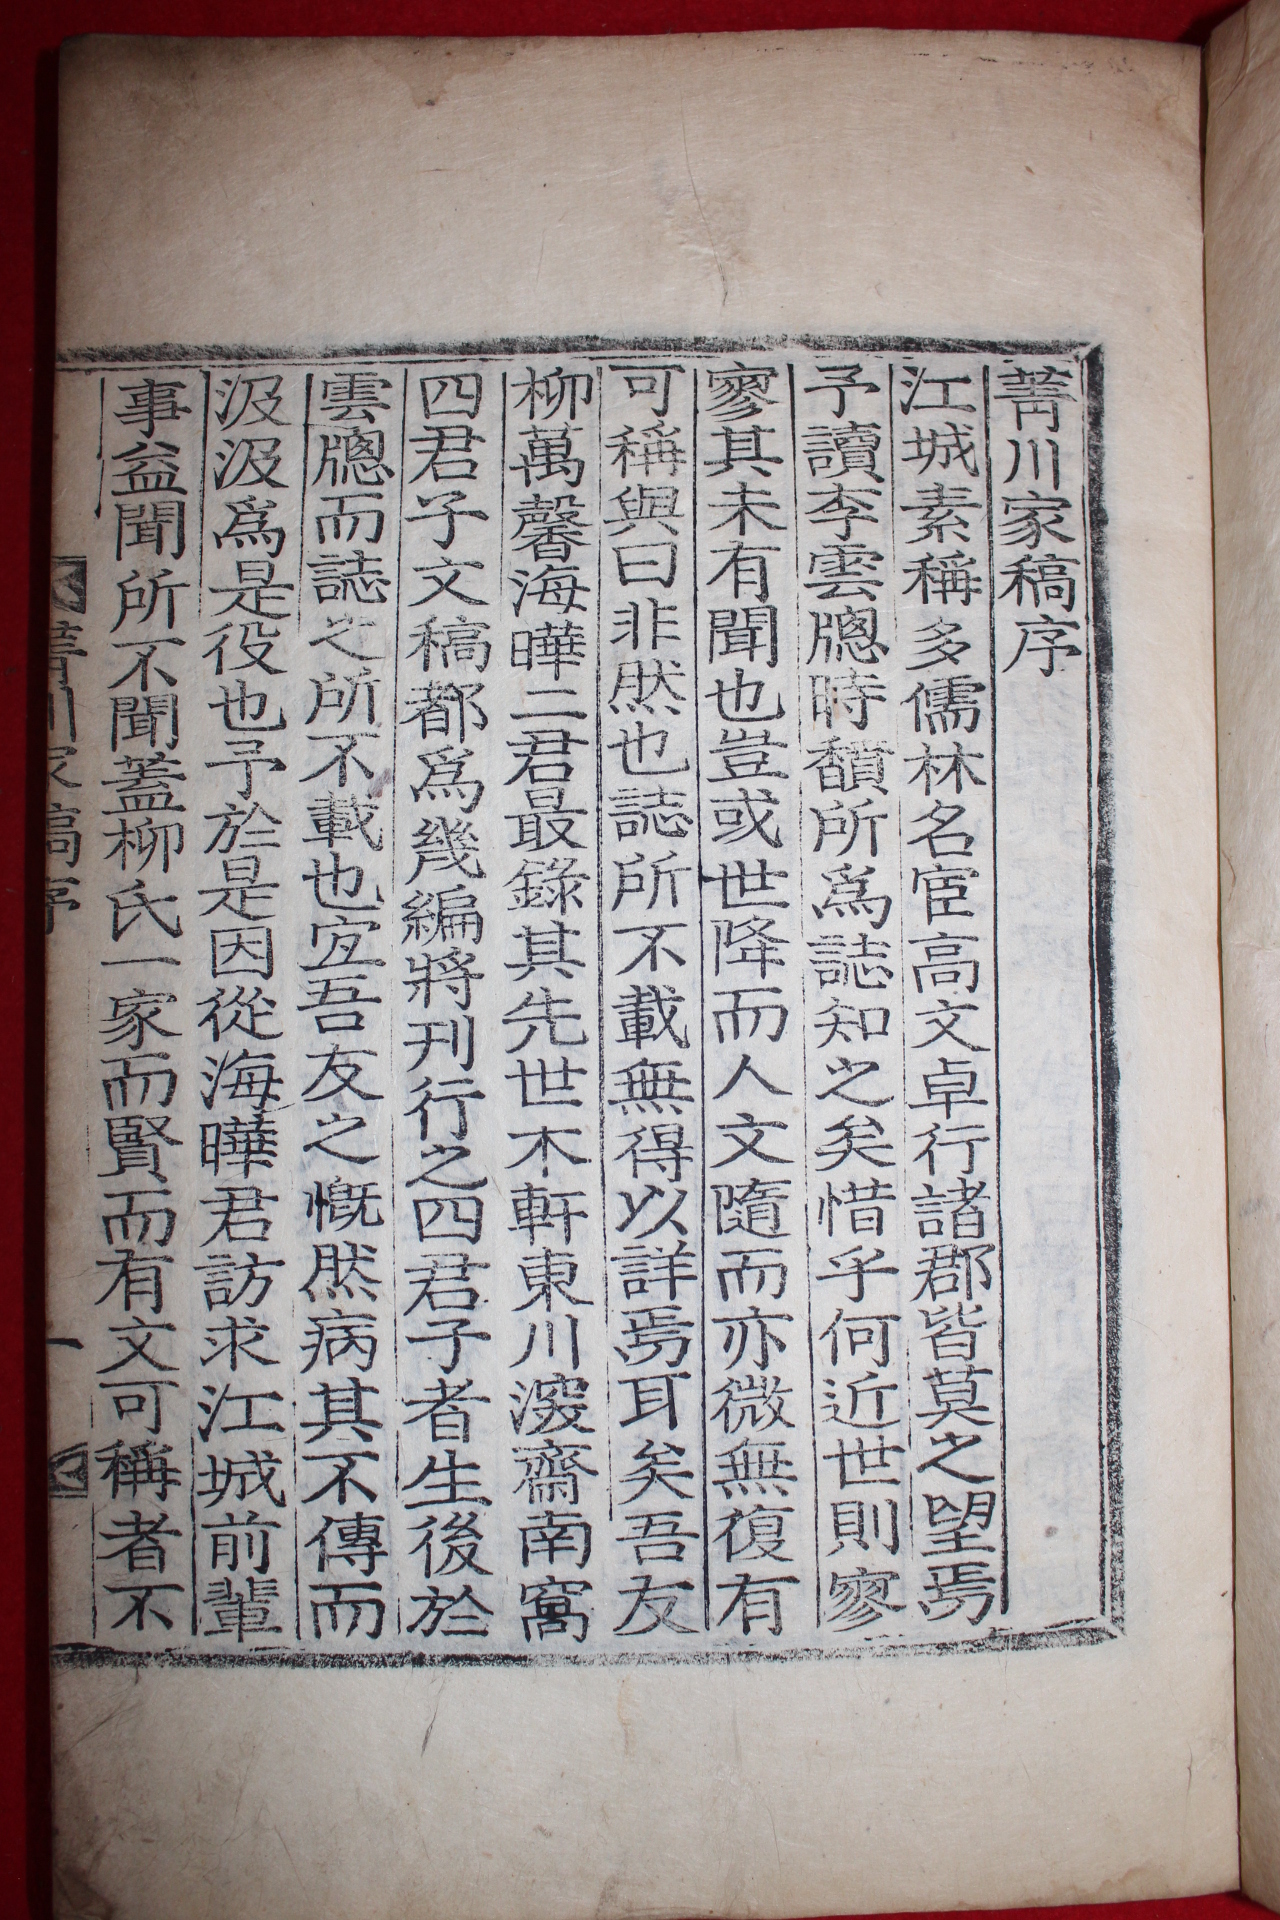 菁川家稿序
江城素稱多儒林名宦高文卓行諸郡皆莫之望焉
予讀李雲牕時馩所爲誌知之矣惜乎何近世則寥
寥其未有聞也豈或世降而人文隨而亦微無復有
可稱與曰非然也誌所不載無得以詳焉耳矣吾友
柳萬馨海曄二君最錄其先世木軒東川濲齋南窩
四君子文稿都爲幾編將刊行之四君子者生後於
雲牕而誌之所不載也宜吾友之慨然病其不傳而
汲汲爲是役也予於是因從海曄君訪求江城前輩
事益聞所不聞蓋柳氏一家而賢而有文可稱者不
菁川家稿序
一